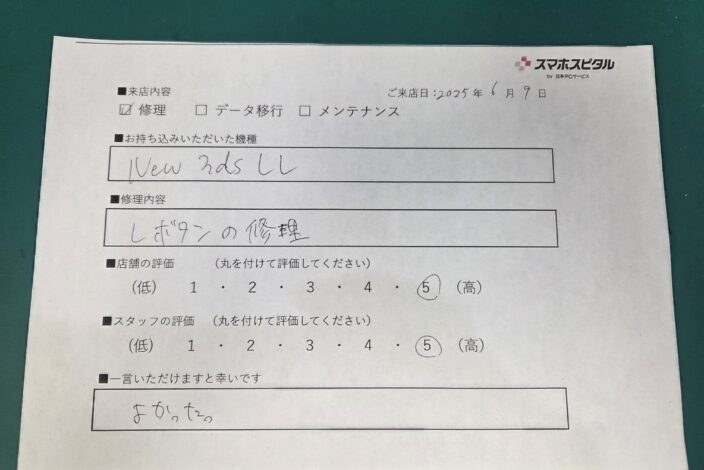 スマホスピタル
by 日本PCサービス
■来店内容
ご来店日:2025年 6月 9日
☑ 修理 □ データ移行 □ メンテナンス
■お持ち込みいただいた機種
New 3ds LL
■修理内容
Lボタンの修理
■店舗の評価 (丸を付けて評価してください)
(低) 1 ・ 2 ・ 3 ・ 4 ・ 5 (高)
■スタッフの評価 (丸を付けて評価してください)
(低) 1 ・ 2 ・ 3 ・ 4 ・ 5 (高)
■一言いただけますと幸いです
よかった。